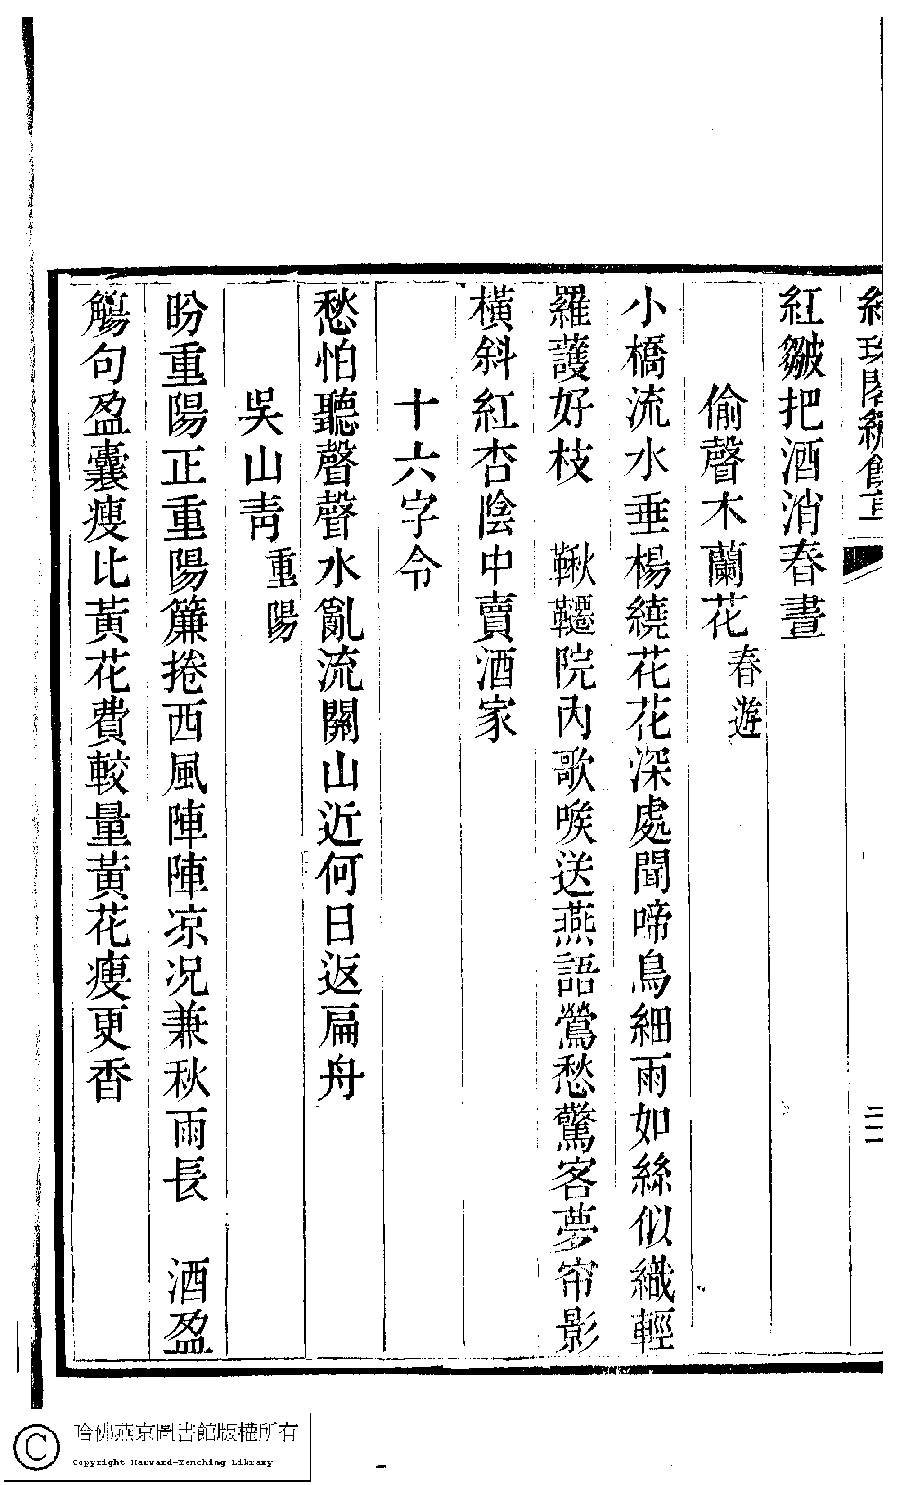 紅皺把酒消春晝
偷聲木蘭花春遊
小橋流水垂楊繞花花深處聞啼鳥細雨如絲似織輕
羅護好枝　鞦韆院內歌喉送燕語鶯愁驚客夢帘影
橫斜紅杏陰中賣酒家
十六字令
愁怕聽聲聲水亂流關山近何日返扁舟
吳山青重陽
盼重陽正重陽簾捲西風陣陣凉况兼秋雨長　酒盈
觴句盈囊瘦比黃花費較量黃花瘦更香
哈佛燕京圖書館版權所有
Copyright Harvard-Yenching Library